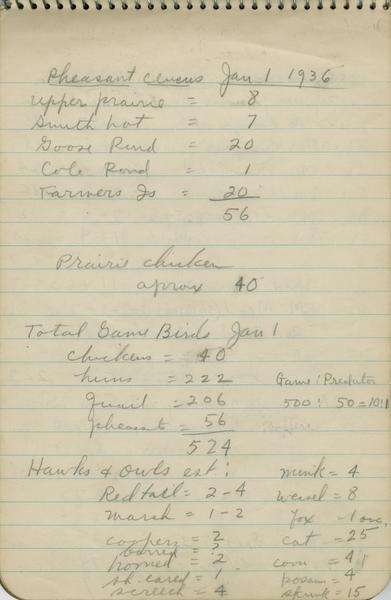 Pheasant census Jan 1 1936
Upper prairie = 8
Smith hot = 7
Goose Pond = 20
Cole Pond = 1
Farmers Is = 20
56
Prairie chicken
aprox 40
Total Game Birds Jan 1
chickens = 40
huns = 222
quail = 206
pheasant = 56
524
Game : Predator
500 : 50 = 10:1
Hawks & owls est :
Redtail = 2-4
marsh = 1-2
coopers = 2
barred = ?
horned = 2
sh. eared = 1
screech = 4
mink = 4
weasel = 8
fox - 1 occ.
cat = 25
coon = 4
possum = 4
skunk = 15